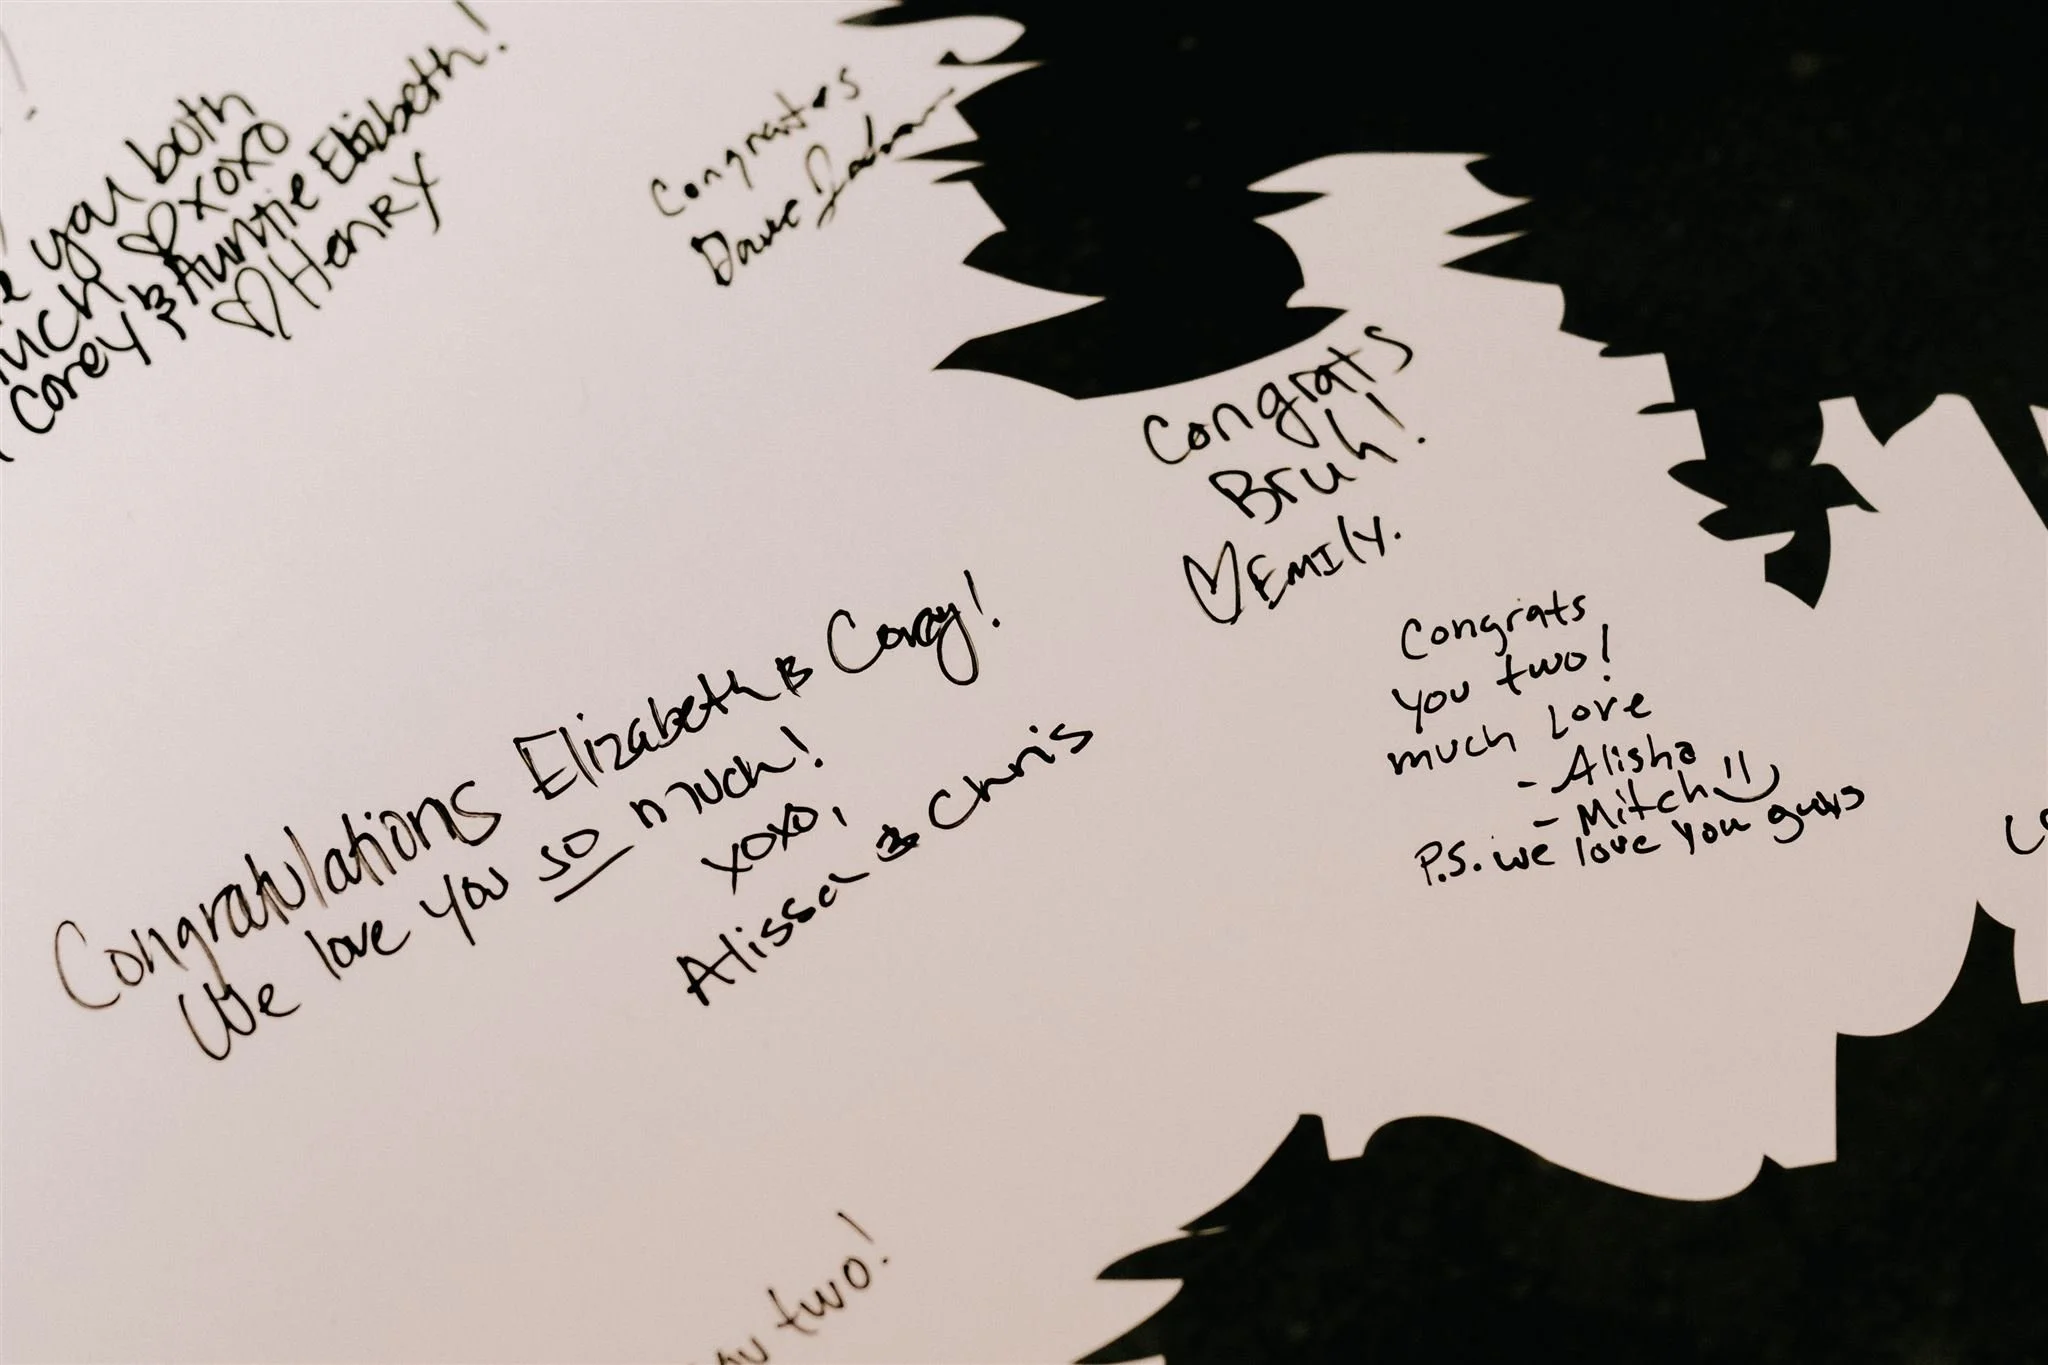 you both
♡ xoxo
Corey & Auntie Elizabeth!
♡ Henry
Congrats
Dave
Congrats
Bruh!
♡ Emily.
Congratulations Elizabeth & Corey!
We love you so much!
xoxo,
Alissa & Chris
Congrats
you two!
much love
- Alisha
- Mitch
P.S. we love you guys
two!